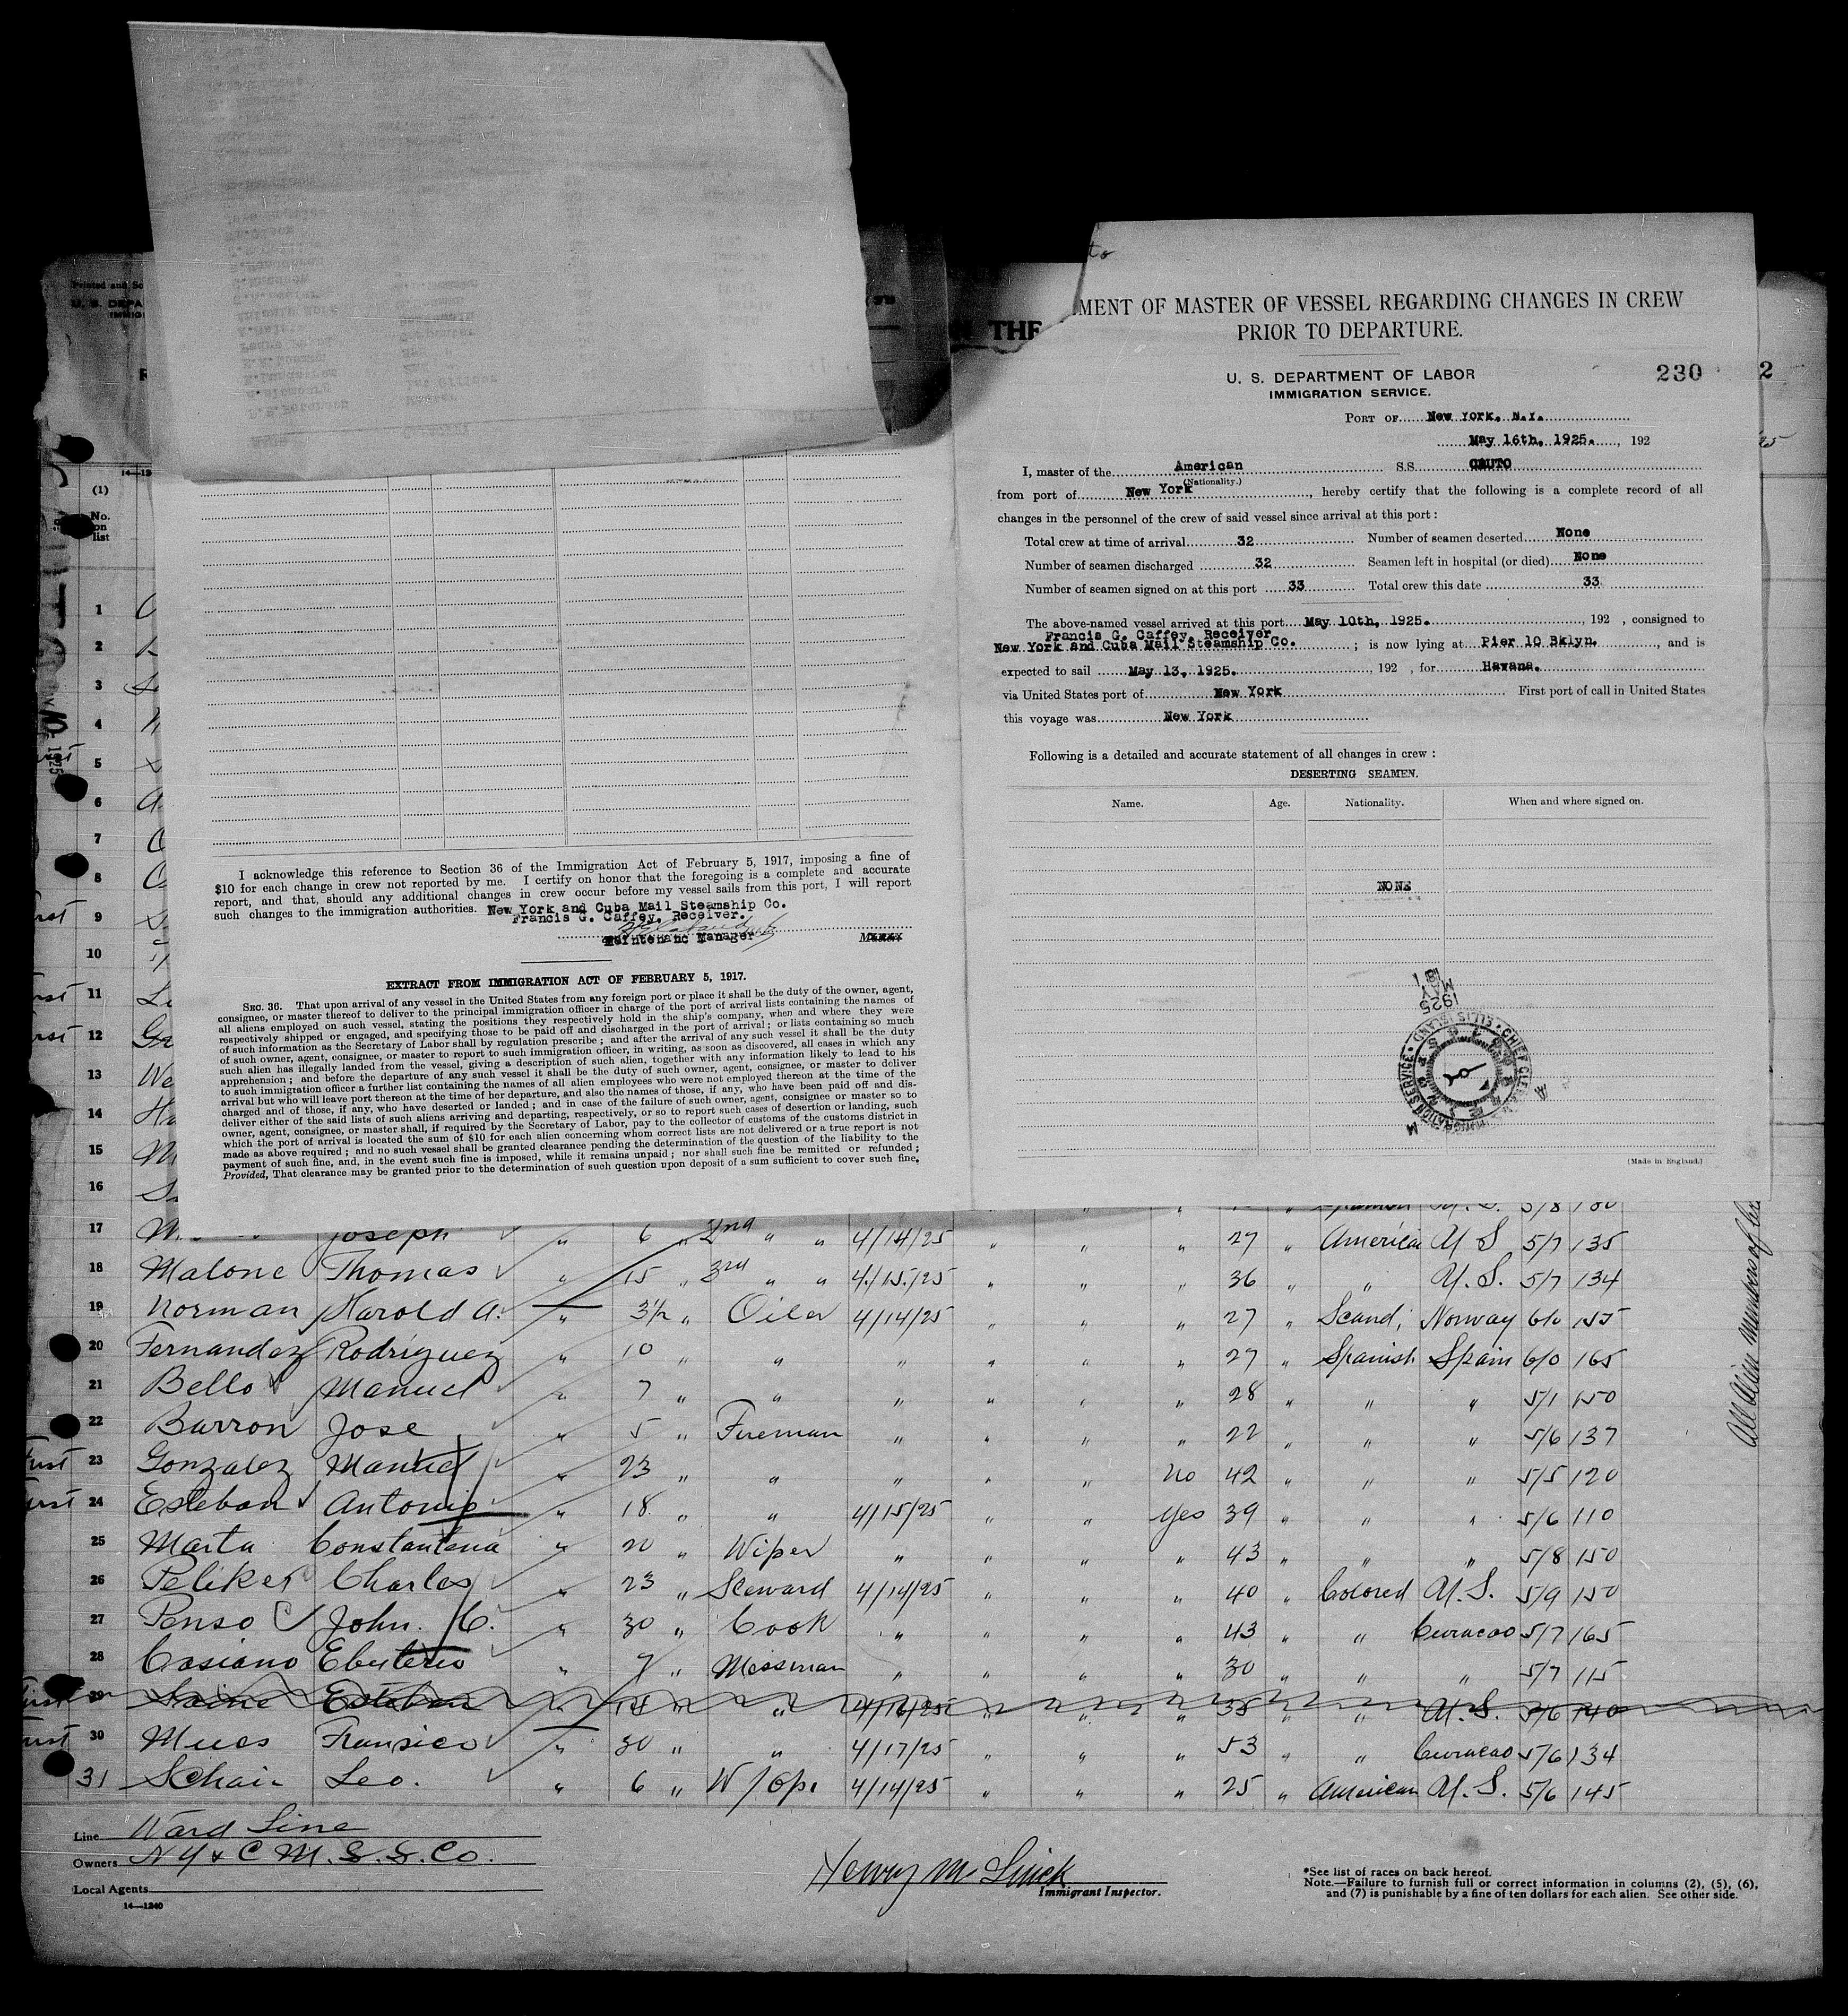 MENT OF MASTER OF VESSEL REGARDING CHANGES IN CREW
PRIOR TO DEPARTURE.
U. S. DEPARTMENT OF LABOR
IMMIGRATION SERVICE.
230
2
PORT OF New York, N.Y.
May 16th, 1925. , 192
I, master of the American S.S. CAUTO
(Nationality.)
from port of New York , hereby certify that the following is a complete record of all
changes in the personnel of the crew of said vessel since arrival at this port :
Total crew at time of arrival 32 Number of seamen deserted None
Number of seamen discharged 32 Seamen left in hospital (or died) None
Number of seamen signed on at this port 33 Total crew this date 33
The above-named vessel arrived at this port May 10th, 1925. , 192 , consigned to
Francis G. Caffey, Receiver
New York and Cuba Mail Steamship Co. ; is now lying at Pier 10 Bklyn. , and is
expected to sail May 13, 1925. , 192 , for Havana.
via United States port of New York First port of call in United States
this voyage was New York
Following is a detailed and accurate statement of all changes in crew :
DESERTING SEAMEN.
Name. Age. Nationality. When and where signed on.
NONE
(Made in England.)
I acknowledge this reference to Section 36 of the Immigration Act of February 5, 1917, imposing a fine of
$10 for each change in crew not reported by me. I certify on honor that the foregoing is a complete and accurate
report, and that, should any additional changes in crew occur before my vessel sails from this port, I will report
such changes to the immigration authorities. New York and Cuba Mail Steamship Co.
Francis G. Caffey, Receiver.
Maintenanc Manager
EXTRACT FROM IMMIGRATION ACT OF FEBRUARY 5, 1917.
SEC. 36. That upon arrival of any vessel in the United States from any foreign port or place it shall be the duty of the owner, agent,
consignee, or master thereof to deliver to the principal immigration officer in charge of the port of arrival lists containing the names of
all aliens employed on such vessel, stating the positions they respectively hold in the ship's company, when and where they were
respectively shipped or engaged, and specifying those to be paid off and discharged in the port of arrival ; or lists containing so much
of such information as the Secretary of Labor shall by regulation prescribe ; and after the arrival of any such vessel it shall be the duty
of such owner, agent, consignee, or master to report to such immigration officer, in writing, as soon as discovered, all cases in which any
such alien has illegally landed from the vessel, giving a description of such alien, together with any information likely to lead to his
apprehension ; and before the departure of any such vessel it shall be the duty of such owner, agent, consignee, or master to deliver
to such immigration officer a further list containing the names of all alien employees who were not employed thereon at the time of the
arrival but who will leave port thereon at the time of her departure, and also the names of those, if any, who have been paid off and dis-
charged and of those, if any, who have deserted or landed ; and in case of the failure of such owner, agent, consignee or master so to
deliver either of the said lists of such aliens arriving and departing, respectively, or so to report such cases of desertion or landing, such
owner, agent, consignee, or master shall, if required by the Secretary of Labor, pay to the collector of customs of the customs district in
which the port of arrival is located the sum of $10 for each alien concerning whom correct lists are not delivered or a true report is not
made as above required ; and no such vessel shall be granted clearance pending the determination of the question of the liability to the
payment of such fine, and, in the event such fine is imposed, while it remains unpaid ; nor shall such fine be remitted or refunded ;
Provided, That clearance may be granted prior to the determination of such question upon deposit of a sum sufficient to cover such fine,
(1)
No. on list
1
2
3
4
5
6
7
8
9
10
11
12
13
14
15
16
17 Joseph " 6 " 2nd " " 4/14/25 " " " 27 " American U S 5/7 135
18 Malone Thomas " 15 " 3rd " " 4/15/25 " " " 36 " " U.S. 5/7 134
19 Norman Harold A. " 3½ " Oiler 4/14/25 " " " 27 " Scand; Norway 6/0 155
20 Fernandez Rodriguez " 10 " " " " " " 27 " Spanish Spain 6/0 165
21 Bello Manuel " 7 " " " " " " 28 " " " 5/1 150
22 Barron Jose " 5 " Fireman " " " " 22 " " " 5/6 137
23 Gonzalez Manuel " 23 " " " " " No 42 " " " 5/5 120
24 Esteban Antonio " 18 " " 4/15/25 " " Yes 39 " " " 5/6 110
25 Marta Constantena " 20 " Wiper " " " " 43 " " " 5/8 150
26 Peliker Charles " 23 " Steward 4/14/25 " " " 40 " Colored U.S. 5/9 150
27 Penso John. C. " 30 " Cook " " " " 43 " " Curacao 5/7 165
28 Casiano Ebuterio " 7 " Messman " " " " 30 " " " 5/7 115
29 Esteban " " 4/16/25 " " " 35 " " U.S. 5/6 140
30 Mues Fransico " 30 " " 4/17/25 " " " 53 " " Curacao 5/6 134
31 Schair Leo. " 6 " W/Opr 4/14/25 " " " 25 " American U.S. 5/6 145
Line Ward Line
Owners N Y & C M. S. S. Co.
Local Agents
14—1240
Henry M
Immigrant Inspector.
*See list of races on back hereof.
Note.—Failure to furnish full or correct information in columns (2), (5), (6),
and (7) is punishable by a fine of ten dollars for each alien. See other side.
All Alien members of